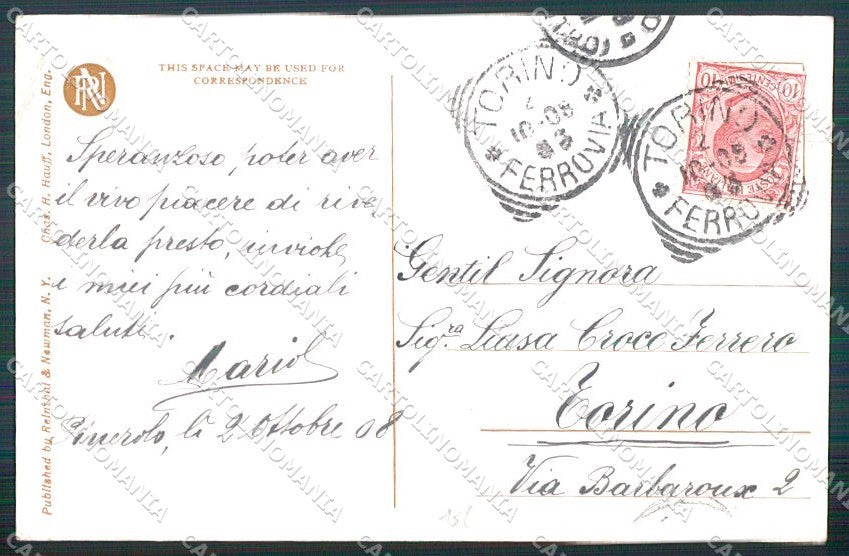 THIS SPACE MAY BE USED FOR
CORRESPONDENCE
Published by Reinthal & Newman, N. Y. Chas. H. Hauff, London, Eng.
Speranzoso poter aver
il vivo piacere di rive
derla presto, inviole
i miei più cordiali
saluti.
Mario
Pinerolo, li 2 Ottobre 08
TORINO
2
10-08
FERROVIA
TORINO
2
10-08
FERROVIA
10
CENTESIMI
10
POSTE
Gentil Signora
Sig.ra Luisa Croce Ferrero
Torino
Via Barbaroux 2
CARTOLINOMANIA